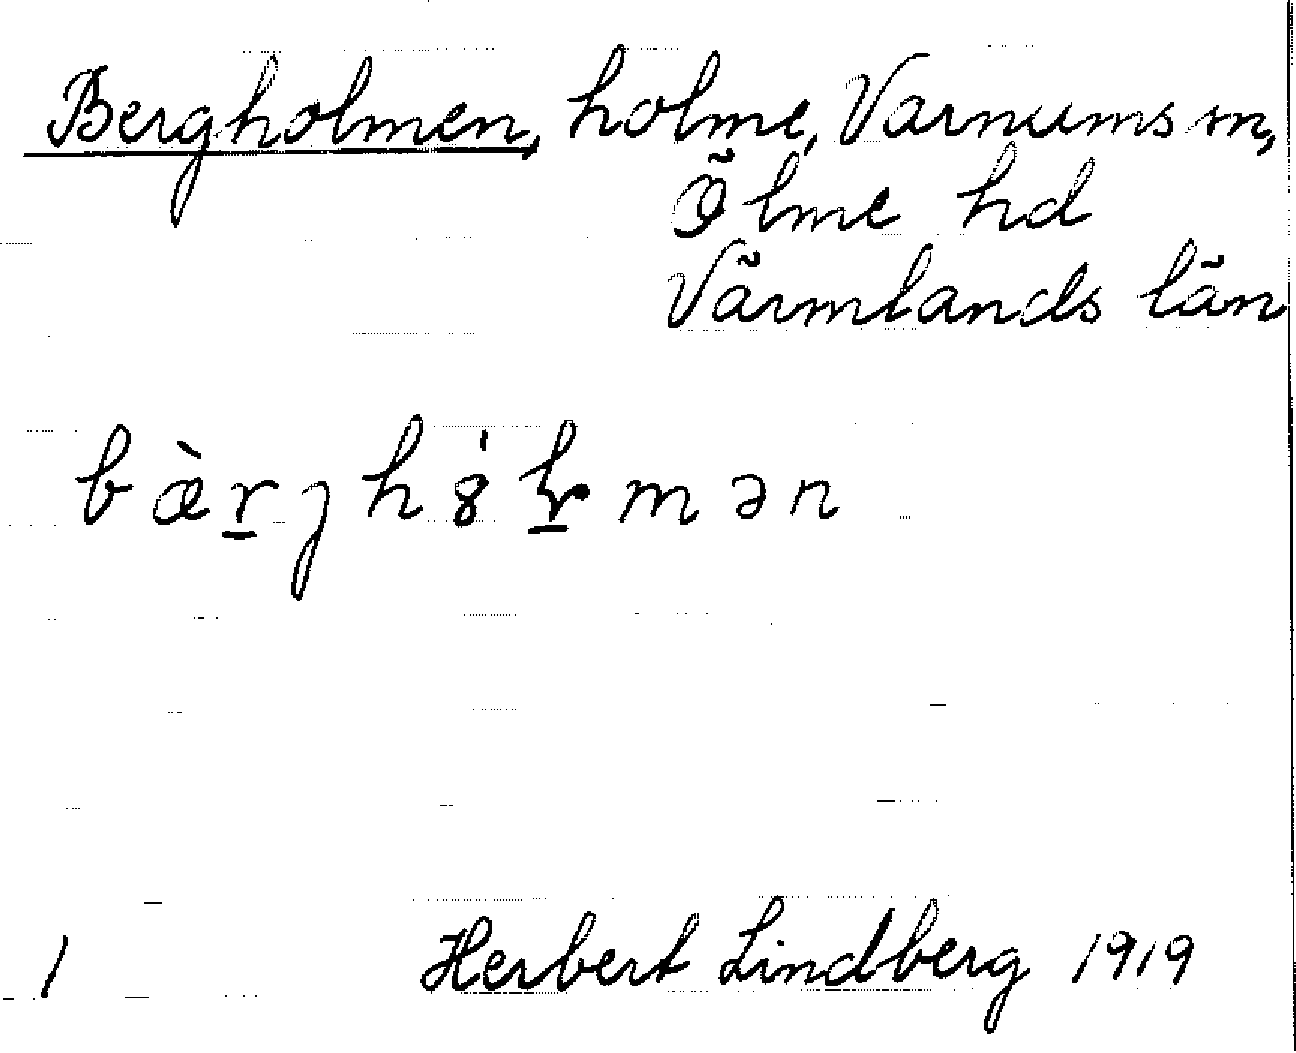 Bergholmen, holme, Varnums sn,
Ölme hd
Värmlands län
bæ̀r̲ȷhȣ́ɫ̲mən
1 Herbert Lindberg 1919